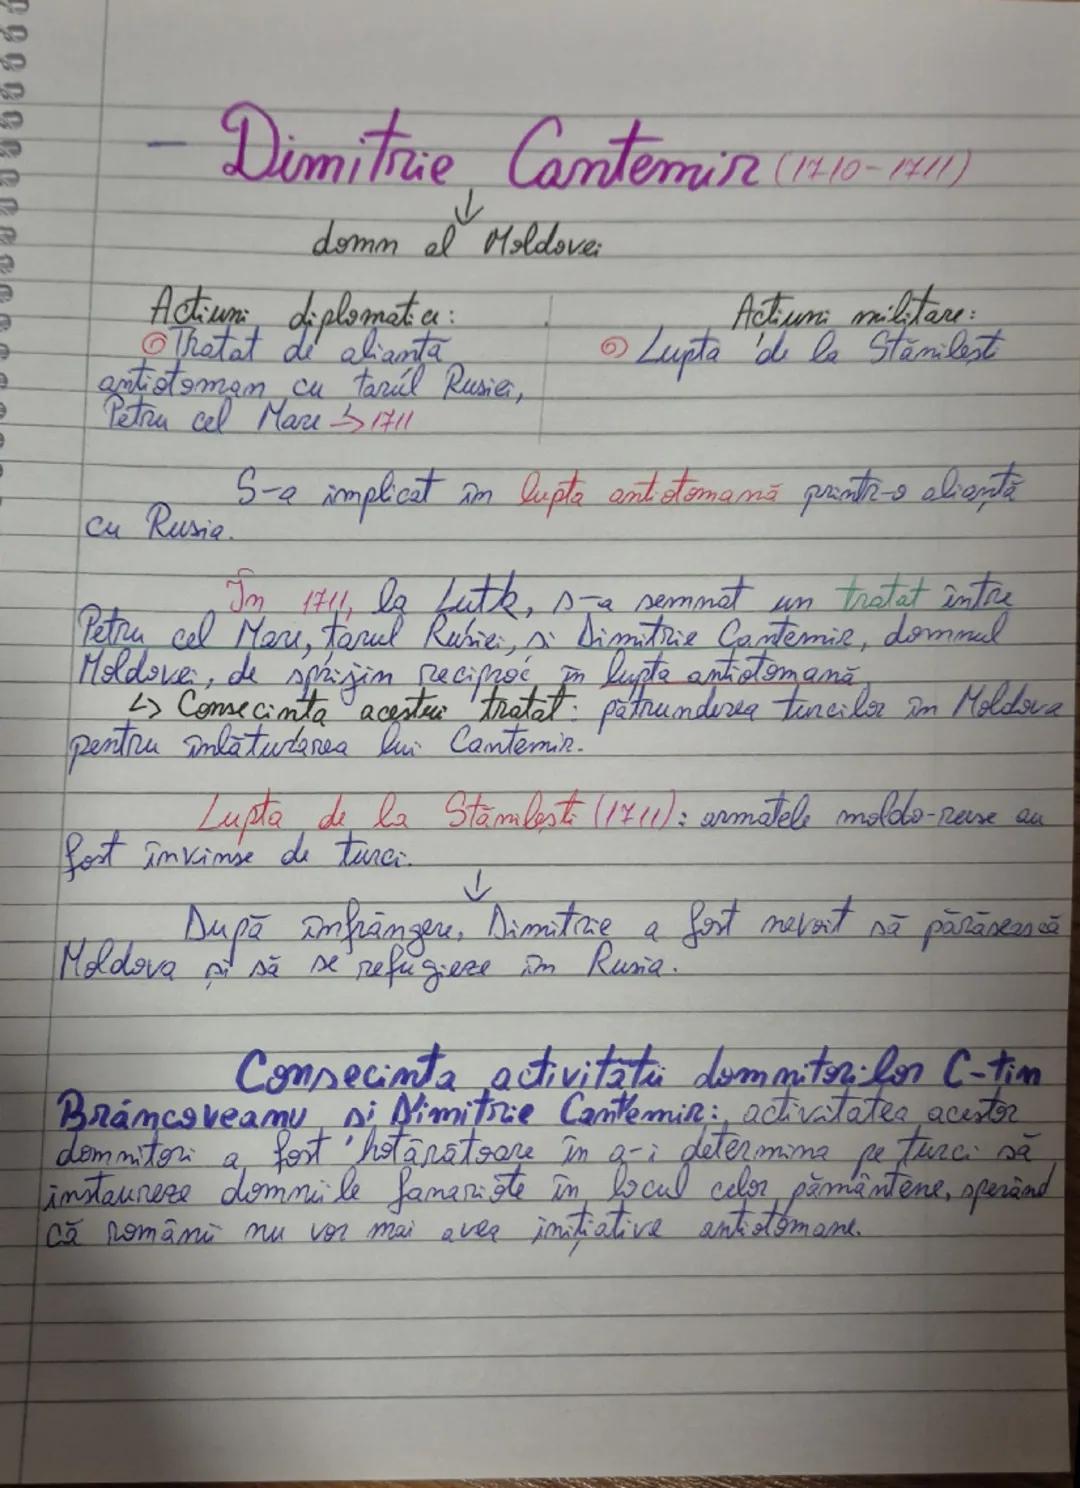 - Dimitrie Cantemir (1710-1711)
↓
domn al Moldovei
Acțiuni diplomatice:
Tratat de alianță
antiotoman cu țarul Rusiei,
Petru cel Mare ↳ 1711
Acțiuni militare:
Lupta de la Stănilești
S-a implicat în lupta antiotomană printr-o alianță
cu Rusia.
În 1711, la Luțk, s-a semnat un tratat între
Petru cel Mare, țarul Rusiei, și Dimitrie Cantemir, domnul
Moldovei, de sprijin reciproc în lupta antiotomană
↳ Consecința acestui tratat: pătrunderea turcilor în Moldova
pentru înlăturarea lui Cantemir.
Lupta de la Stănilești (1711): armatele moldo-ruse au
fost învinse de turci.
↓
După înfrângere, Dimitrie a fost nevoit să părăsească
Moldova și să se refugieze în Rusia.
Consecința activității domnitorilor C-tin
Brâncoveanu și Dimitrie Cantemir: activitatea acestor
domnitori a fost hotărâtoare în a-i determina pe turci să
instaureze domniile fanariote în locul celor pământene, sperând
că românii nu vor mai avea inițiative antiotomane.